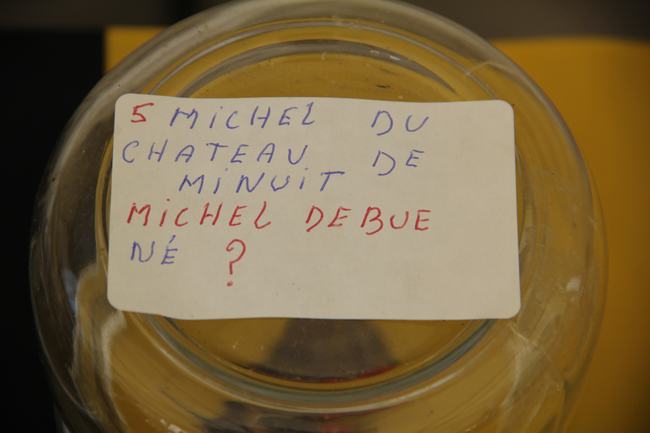 5 MiCHEL DU
CHATEAU DE
MiNUiT
MiCHEL DEBUE
NÉ ?